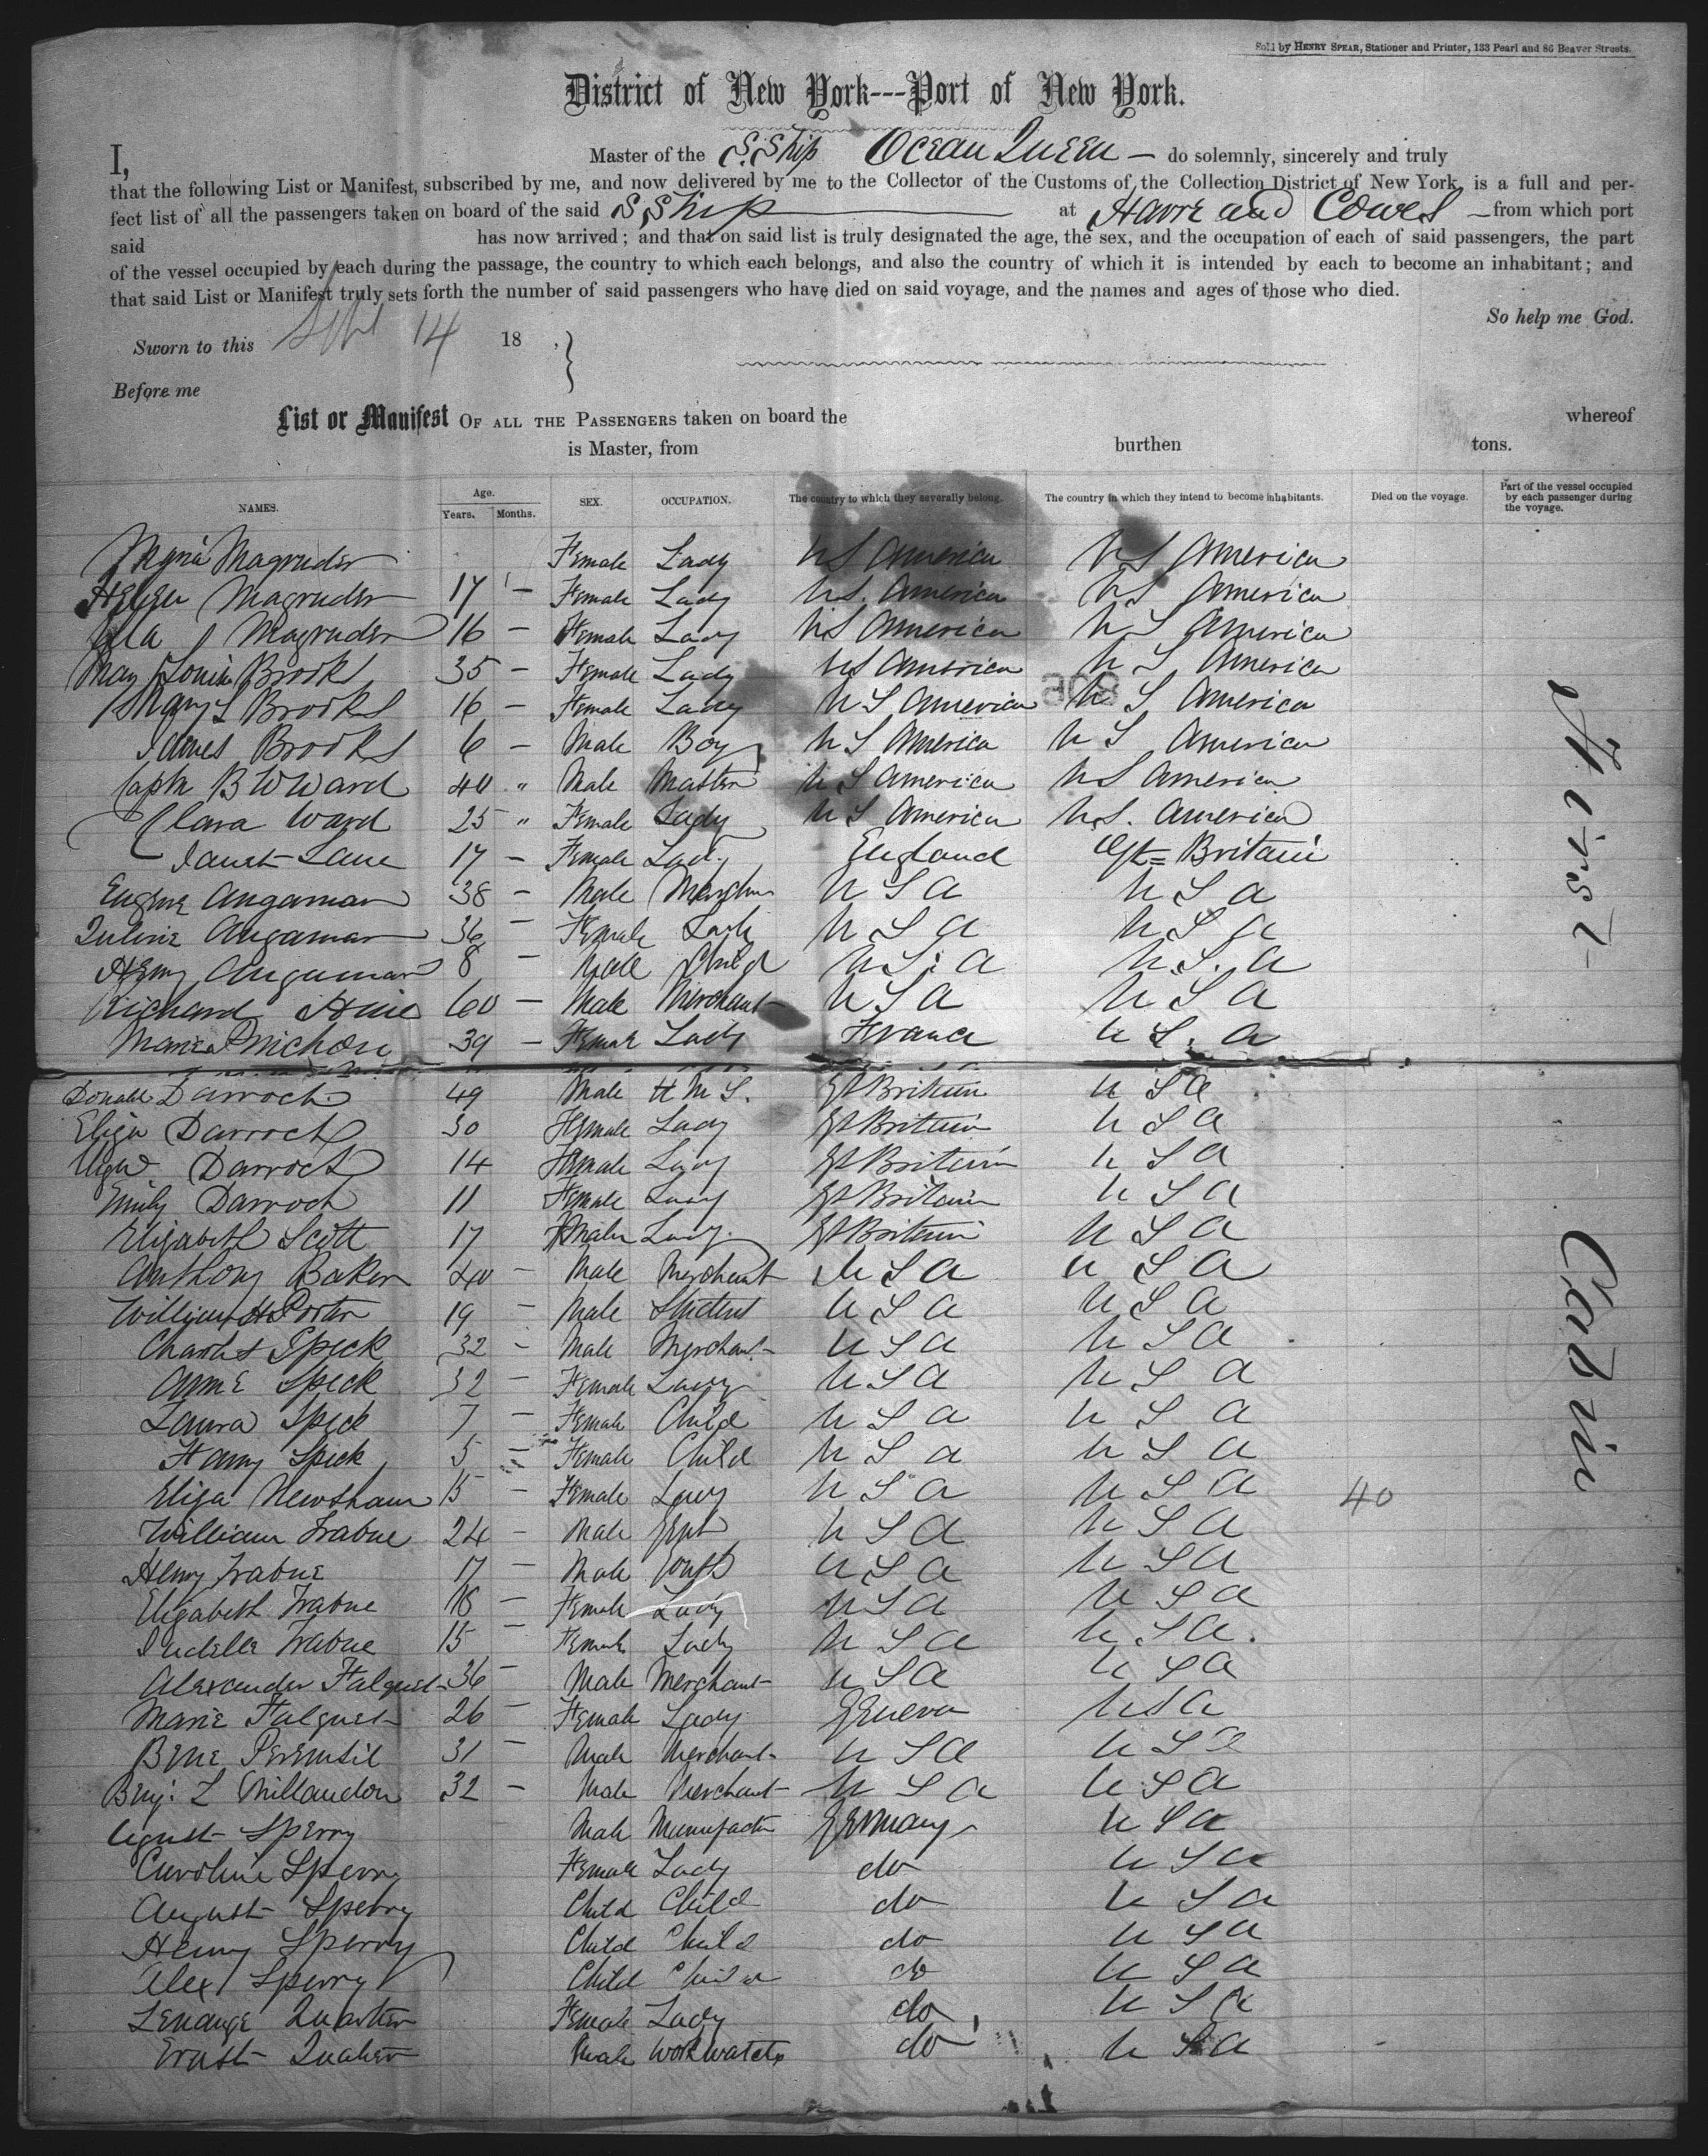 Sold by HENRY SPEAR, Stationer and Printer, 133 Pearl and 86 Beaver Streets.
District of New York---Port of New York.
I, Master of the S.Ship Ocean Queen — do solemnly, sincerely and truly
that the following List or Manifest, subscribed by me, and now delivered by me to the Collector of the Customs of the Collection District of New York, is a full and per-
fect list of all the passengers taken on board of the said S Ship at Havre and Cowes — from which port
said has now arrived; and that on said list is truly designated the age, the sex, and the occupation of each of said passengers, the part
of the vessel occupied by each during the passage, the country to which each belongs, and also the country of which it is intended by each to become an inhabitant; and
that said List or Manifest truly sets forth the number of said passengers who have died on said voyage, and the names and ages of those who died.
So help me God.
Sworn to this Sept 14 18 ,}
Before me
List or Manifest OF ALL THE PASSENGERS taken on board the whereof
is Master, from burthen tons.
NAMES. Age. Years. Months. SEX. OCCUPATION. The country to which they severally belong. The country in which they intend to become inhabitants. Died on the voyage. Part of the vessel occupied by each passenger during the voyage.
Magruder Female Lady U S America U S America
Magruder 17 - Female Lady U S. America U S America
Magruder 16 - Female Lady U S America U S America
Brooks 35 - Female Lady U S America U S America
Mary L Brooks 16 - Female Lady U S America U S America
James Brooks 6 - Male Boy U S America U S America
Capn B W Ward 40 " Male Master U S America U S America
Clara Ward 25 " Female Lady U S America U.S. America
Janet Lane 17 - Female Lady England Gt= Britain
Eugene Angamar 38 - Male U S A U S A
Angamar 36 - Female Lady U S A U S A
Henry Angamar 8 - Male Child U S. A U.S. A
Richard 60 - Male Merchant U S A U S A
Maria 39 - Female Lady France U S. A
Donald Darroch 49 Male H M S. Gt Britain U S A
Eliza Darroch 30 Female Lady Gt Britain U S A
Darroch 14 Female Lady Gt Britain U S A
Emily Darroch 11 Female Lady Gt Britain U S A
Elizabeth Scott 17 Lady. Gt Britain U S A
Anthony Baker 40 - Male Merchant U S A U S A
William H Porter 19 - Male Student U S A U S A
Charles Speck 32 - Male Merchant U S A U S A
Anne Speck 32 - Female Lady U S A U S A
Laura Speck 7 - Female Child U S A U S A
Speck 5 - Female Child U S A U S A
Eliza Newsham 15 - Female Lady U S A U S A 40
William Trabue 24 - Male Gent U S A U S A
Henry Trabue 17 - Male Youth U S A U S A
Elizabeth Trabue 18 - Female Lady U S A U S A
Trabue 15 - Female Lady U S A U S A.
Alexander Falquet 36 - Male Merchant U S A U S A
Marie Falquet 26 - Female Lady Geneva U S A
31 - Male Merchant U S A U S A
Benj: L Millaudon 32 - Male Merchant U S A U S A
Sperry Male Germany U S A
Caroline Sperry Female Lady do U S A
August Sperry Child Child do U S A
Henry Sperry Child Child do U S A
Alex Sperry Child Child do U S A
Female Lady do U S A
Ernst Male do U S A
First
Cabin